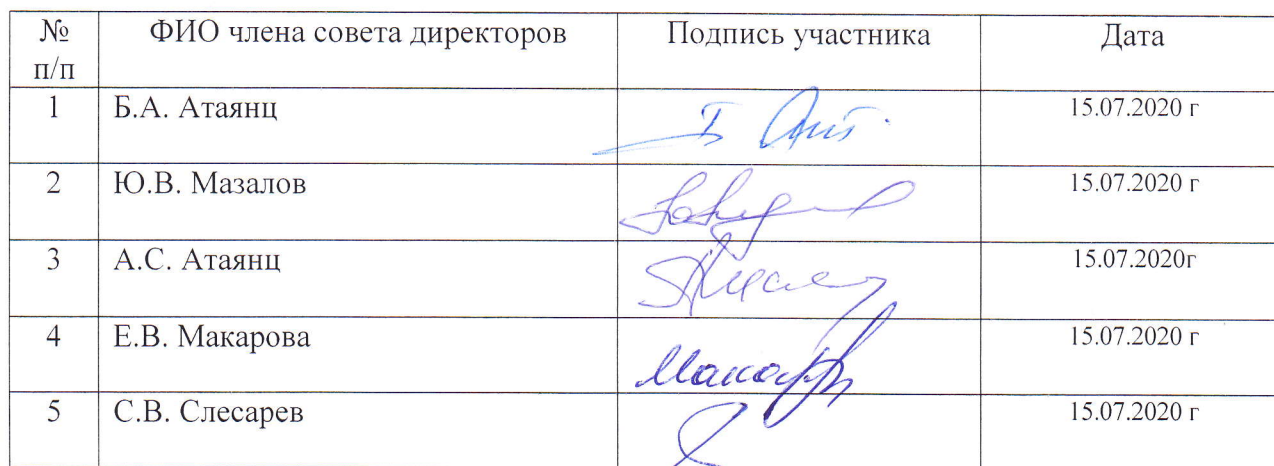 № п/п ФИО члена совета директоров Подпись участника Дата
1 Б.А. Атаянц 15.07.2020 г
2 Ю.В. Мазалов 15.07.2020 г
3 А.С. Атаянц 15.07.2020г
4 Е.В. Макарова 15.07.2020 г
5 С.В. Слесарев 15.07.2020 г